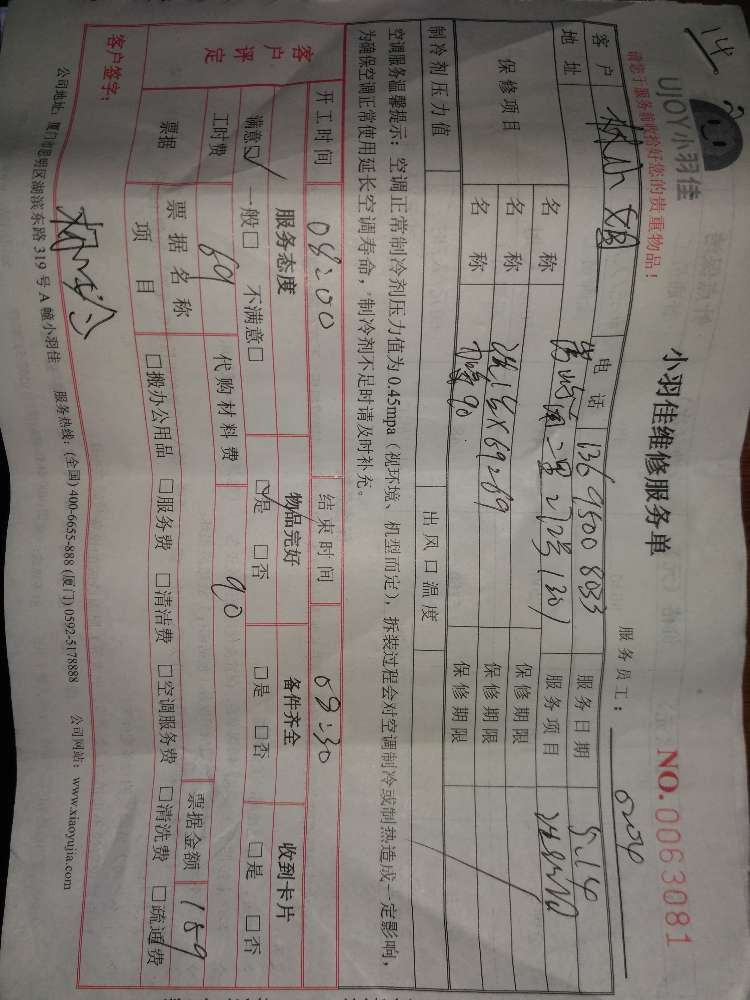 14.
UJOY小羽佳
请您于服务前收拾好您的贵重物品！
小羽佳维修服务单
NO.0063081
服务员工：
客户 林小姐 电话 136 9500 8033 服务日期 5.14
地址 2号1301 服务项目
保修项目 名称 保修期限
名称 保修期限
名称 90 保修期限
制冷剂压力值 出风口温度
空调服务温馨提示：空调正常制冷剂压力值为0.45mpa（视环境、机型而定），拆装过程会对空调制冷或制热造成一定影响，
为确保空调正常使用延长空调寿命，制冷剂不足时请及时补充。
开工时间 08:00 结束时间 09:30
客户评定 服务态度 物品完好 备件齐全 收到卡片
满意☑ 一般□ 不满意□ ☑是 □否 □是 □否 □是 □否
工时费 代购材料费 90
票据 票据名称 票据金额 189
项目 □搬办公用品 □服务费 □清洁费 □空调服务费 □清洗费 □疏通费
客户签字：
公司地址：厦门市思明区湖滨东路319号A幢小羽佳 服务热线：(全国) 400-6655-888 (厦门) 0592-5178888 公司网站：www.xiaoyujia.com